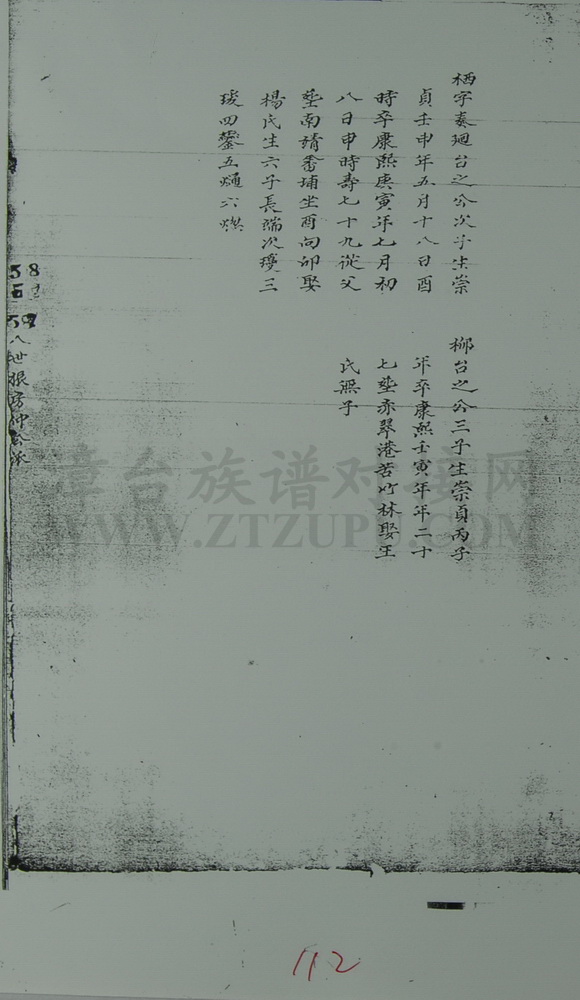 栖字奏廻台之公次子生崇
貞壬申年五月十八日酉
時卒康熙庚寅年七月初
八日申時壽七十九從父
塟南靖番埔坐酉向卯娶
楊氏生六子長瑞次瓊三
琰四鑾五熥六燃
栁台之公三子生崇貞丙子
年卒康熙壬寅年年二十
七塟赤翠港苦竹林娶王
氏無子
58
8
58
八世振房仲公派
漳台族谱对接网
WWW.ZTZUPU.COM
112